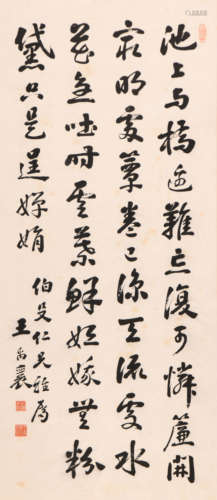 池上与橋邊難忘復可憐簾開
最明處簟卷已涼天流處水
花急吐時雲葉鮮姮娥無粉
黛只是逞嬋娟
伯仁兄雅屬
王禹襄